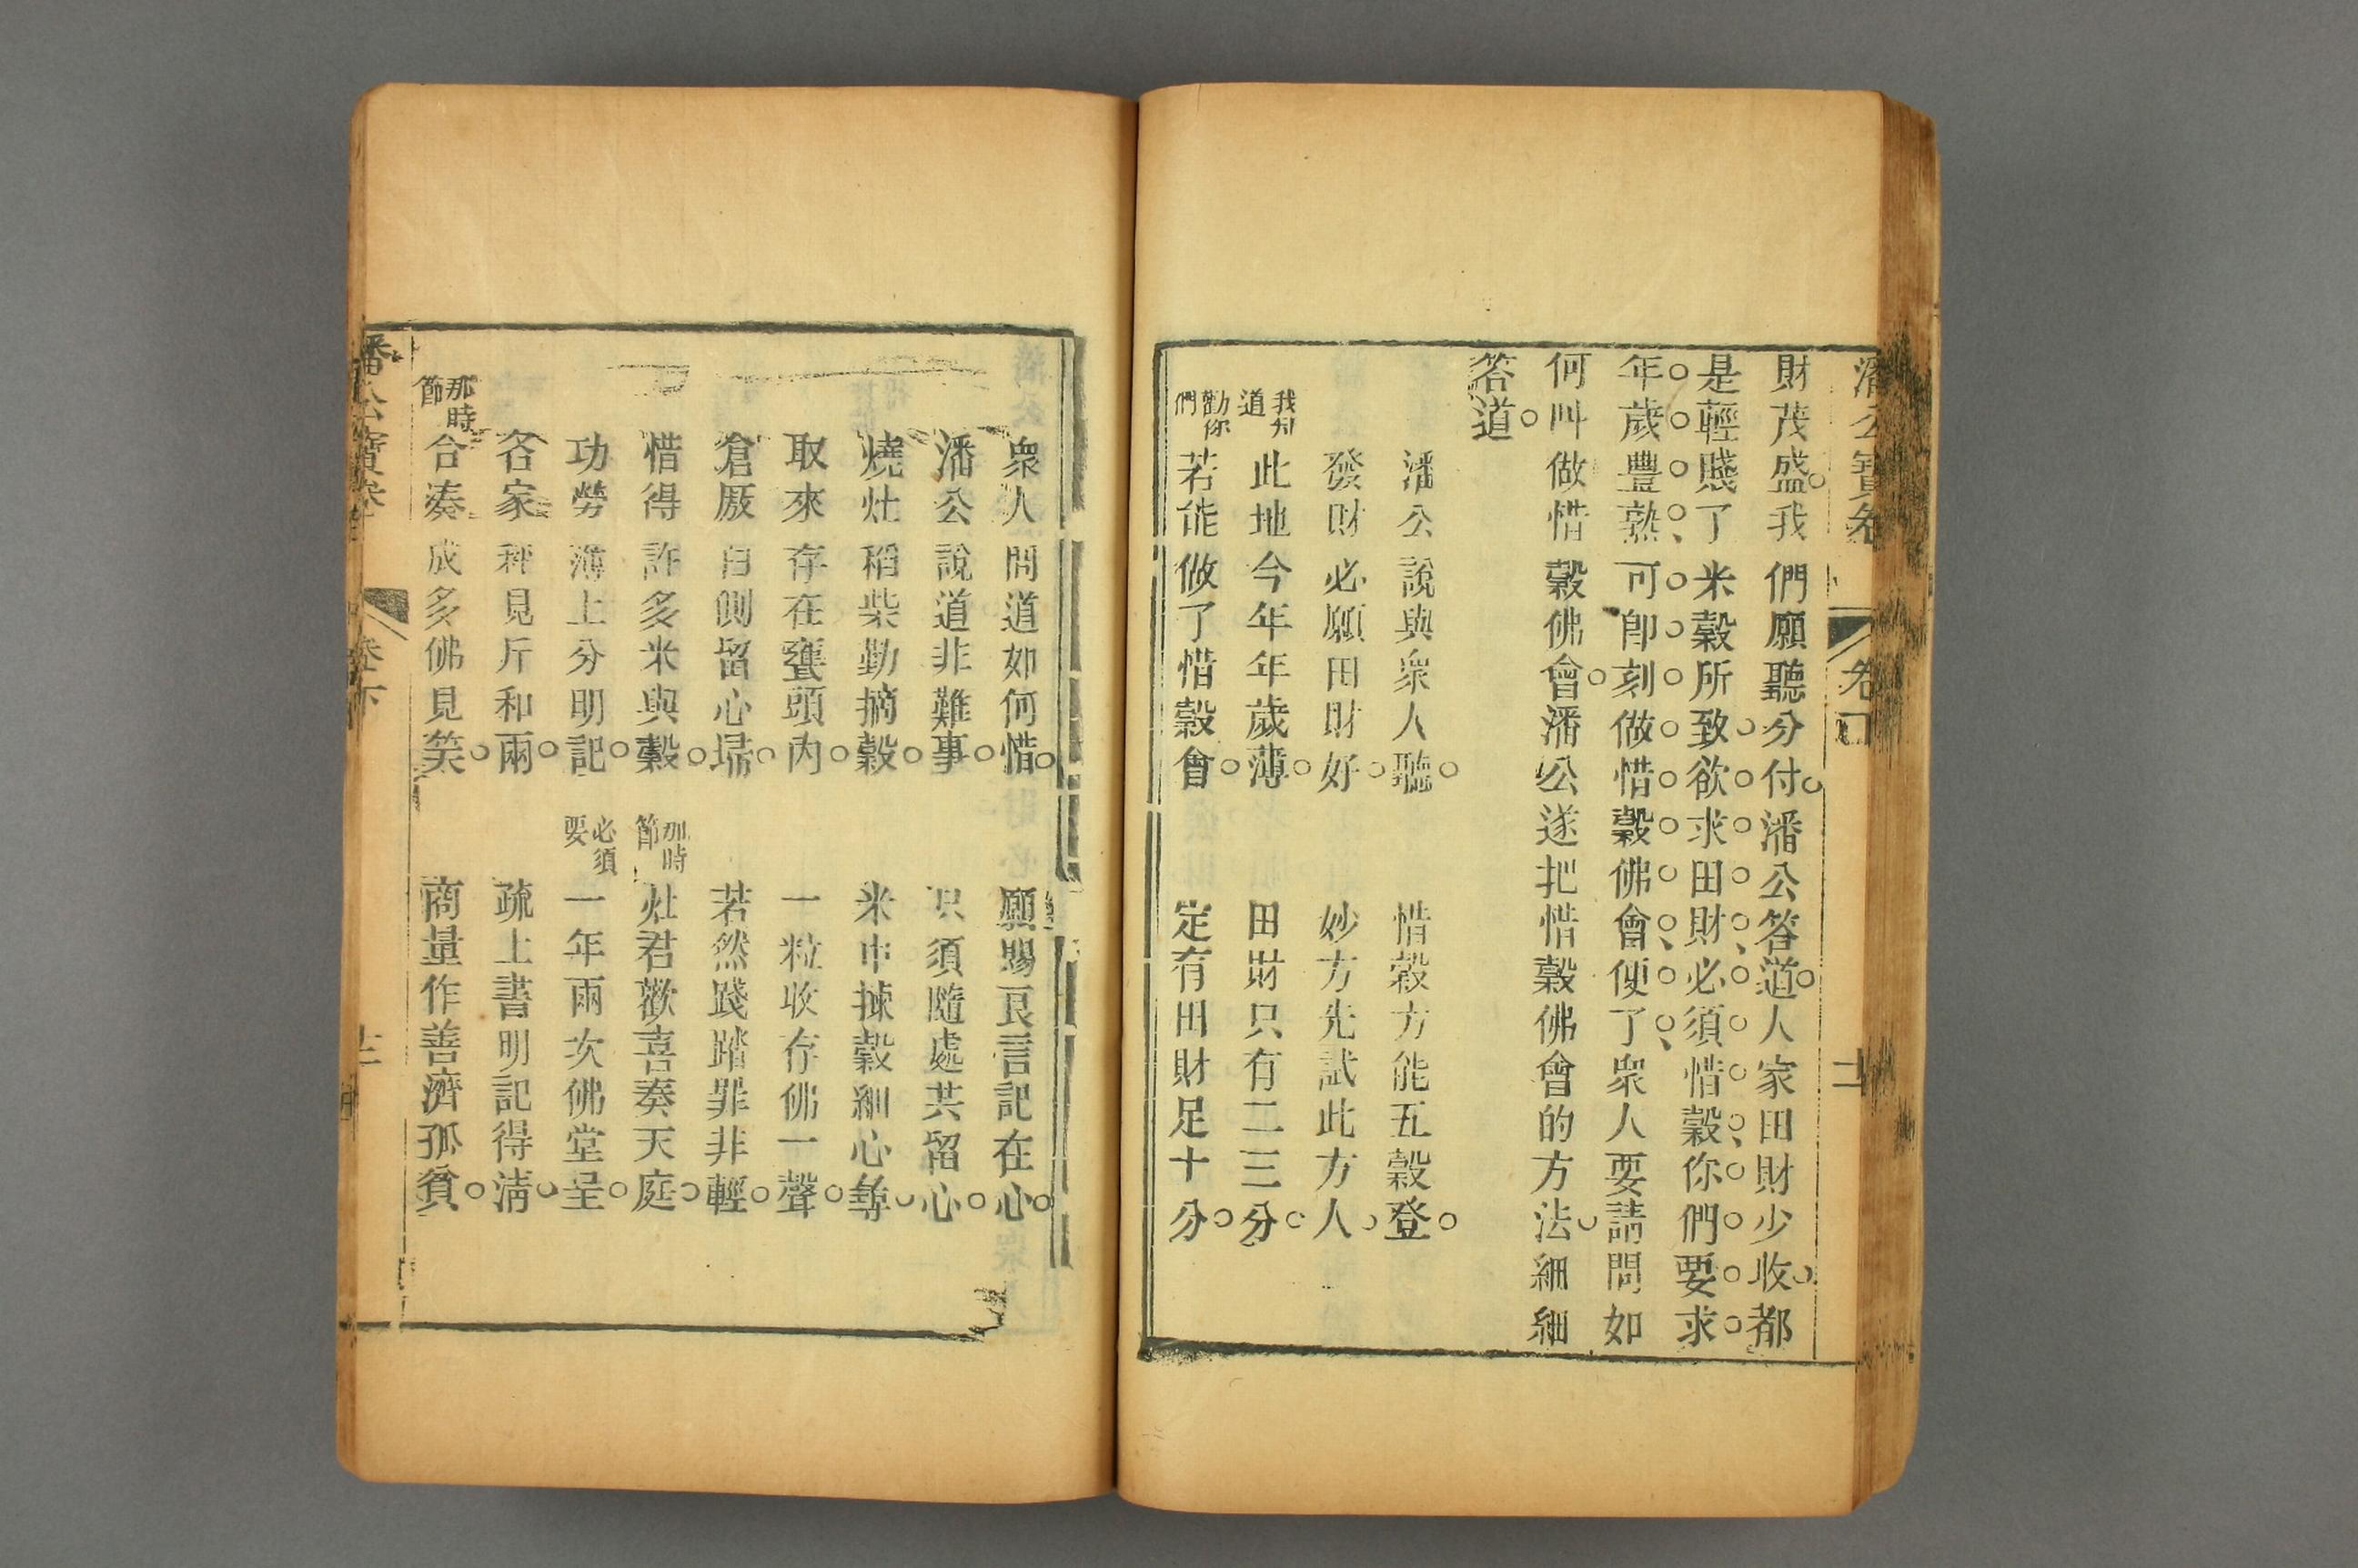 潘公寶卷
卷下
十二
財茂盛我們願聽分付潘公答道人家田財少收都
是輕賤了米穀所致欲求田財必須惜穀你們要求
年歲豐熟可卽刻做惜穀佛會便了衆人要請問如
何叫做惜穀佛會潘公遂把惜穀佛會的方法細細
答道
潘公說與衆人聽 惜穀方能五穀登
發財必願田財好 妙方先試此方人
我知道此地今年年歲薄 田財只有二三分
勸你們若能做了惜穀會 定有田財足十分
衆人問道如何惜 願賜良言記在心
潘公說道非難事 只須隨處共留心
燒灶稻柴勤摘穀 米中揀穀細心尋
取來存在甕頭內 一粒收存佛一聲
倉厫自側留心掃 若然踐踏罪非輕
惜得許多米與穀 那時節灶君歡喜奏天庭
功勞簿上分明記 必須要一年兩次佛堂呈
各家秤見斤和兩 疏上書明記得淸
那時節合湊成多佛見笑 商量作善濟孤貧
潘公寶卷
卷下
十二